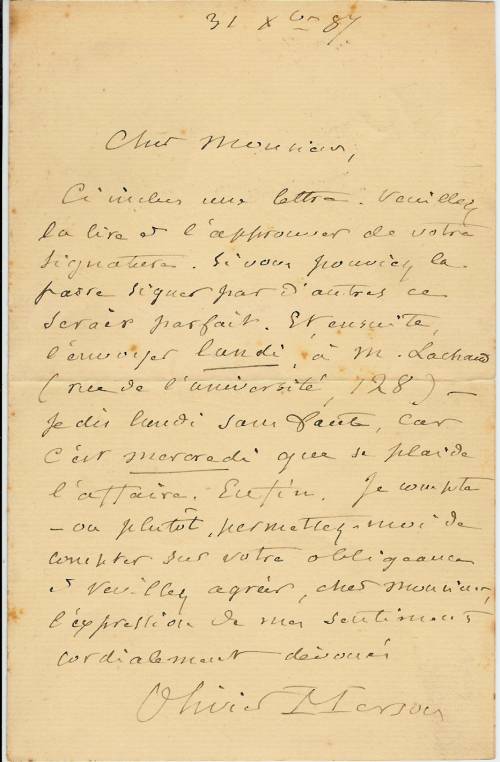 31 Xbre 87
Cher Monsieur,
Ci inclus une lettre. Veuillez
la lire et l'approuver de votre
signature. Si vous pouviez la
faire signer par d'autres ce
serait parfait. Et ensuite,
l'envoyer lundi, à M. Lachaud
(rue de l'université, 128) —
Je dis lundi sans faute, car
c'est mercredi que se plaide
l'affaire. Enfin. Je compte
— ou plutôt, permettez-moi de
compter sur votre obligeance
et veuillez agréer, cher monsieur,
l'expression de mes sentiments
cordialement dévoués
Olivier Merson